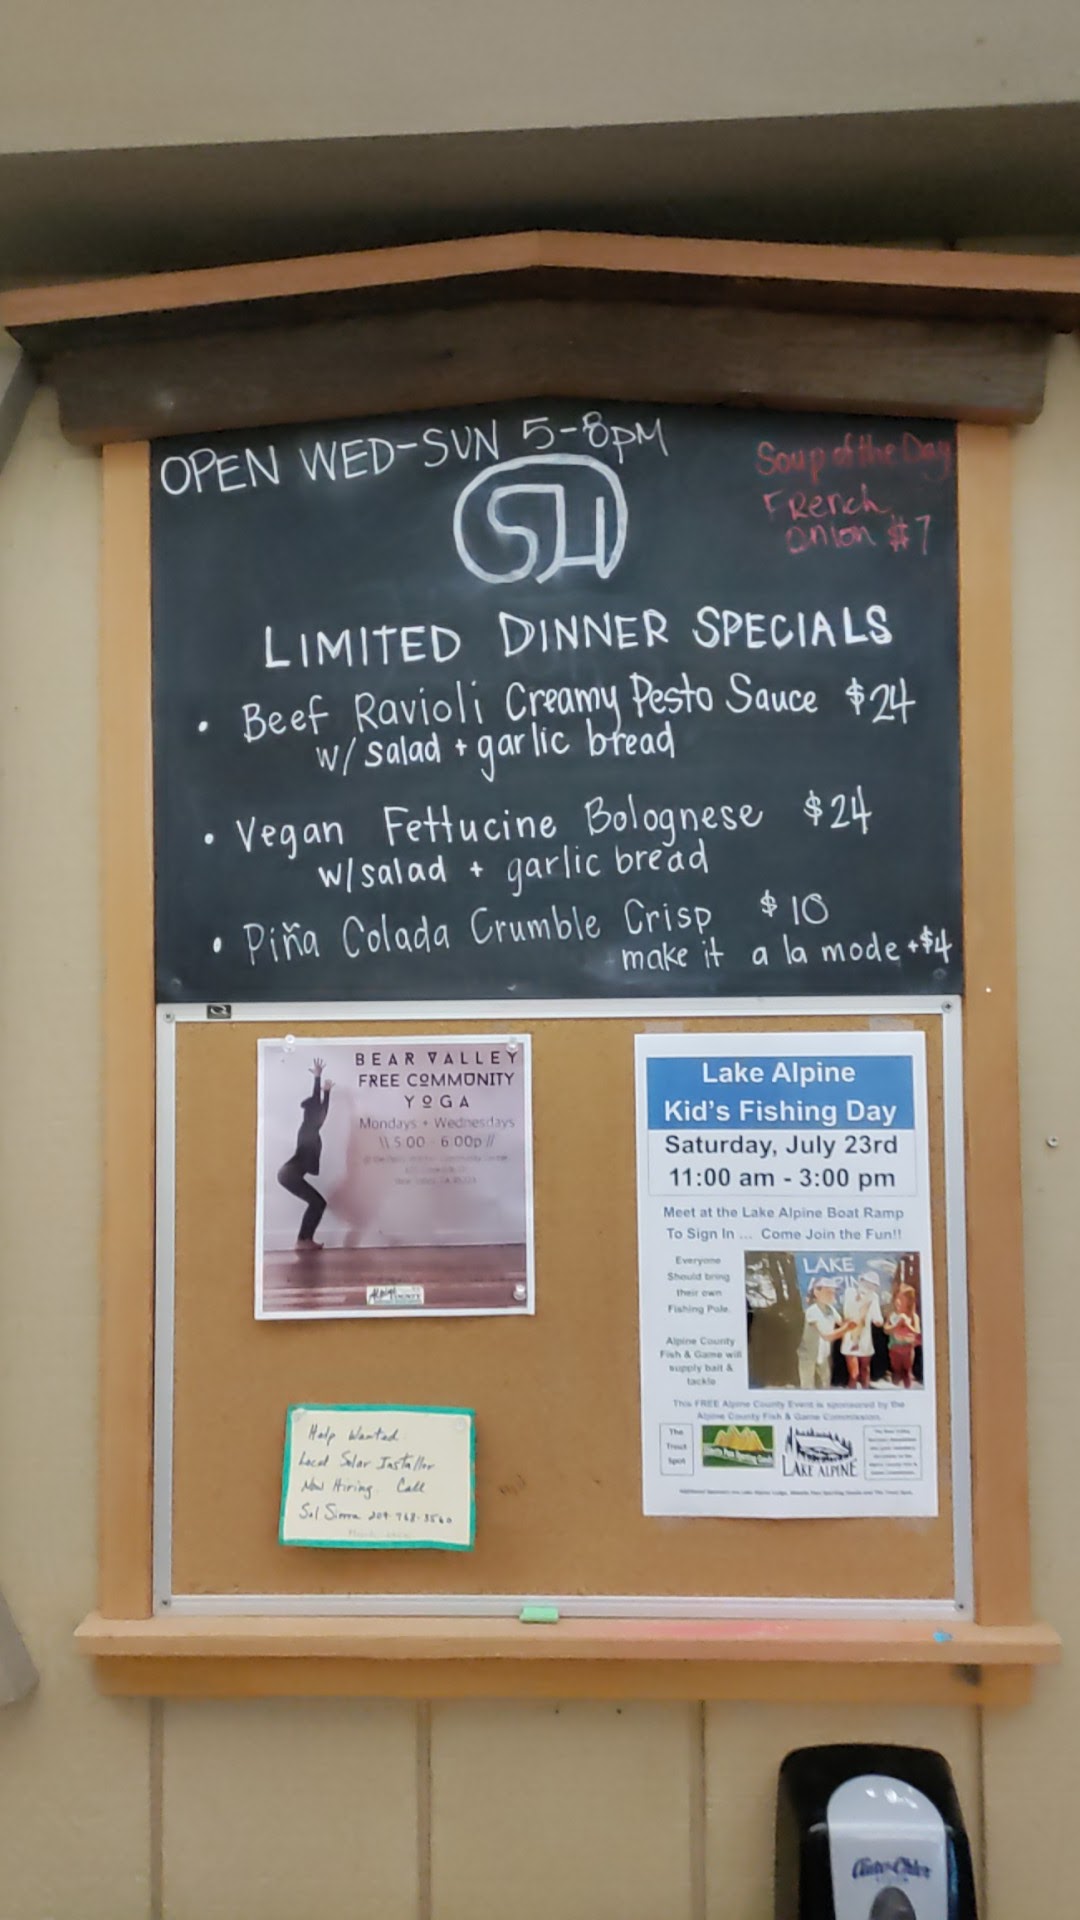 OPEN WED-SUN 5-8PM
SH
Soup of the Day
French
Onion $7
LIMITED DINNER SPECIALS
• Beef Ravioli Creamy Pesto Sauce $24
w/ salad + garlic bread
• Vegan Fettucine Bolognese $24
w/salad + garlic bread
• Piña Colada Crumble Crisp $10
make it a la mode +$4
BEAR VALLEY
FREE COMMUNITY
YOGA
Mondays + Wednesdays
\\ 5:00 - 6:00p //
Lake Alpine
Kid's Fishing Day
Saturday, July 23rd
11:00 am - 3:00 pm
Meet at the Lake Alpine Boat Ramp
To Sign In ... Come Join the Fun!!
Everyone
Should bring
their own
Fishing Pole.
Alpine County
Fish & Game will
supply bait &
tackle
LAKE
ALPINE
This FREE Alpine County Event is sponsored by the
Alpine County Fish & Game Commission.
The
Trout
Spot
LAKE ALPINE
Help Wanted
Local Solar Installer
Now Hiring. Call
Sol Sierra 209-768-3560